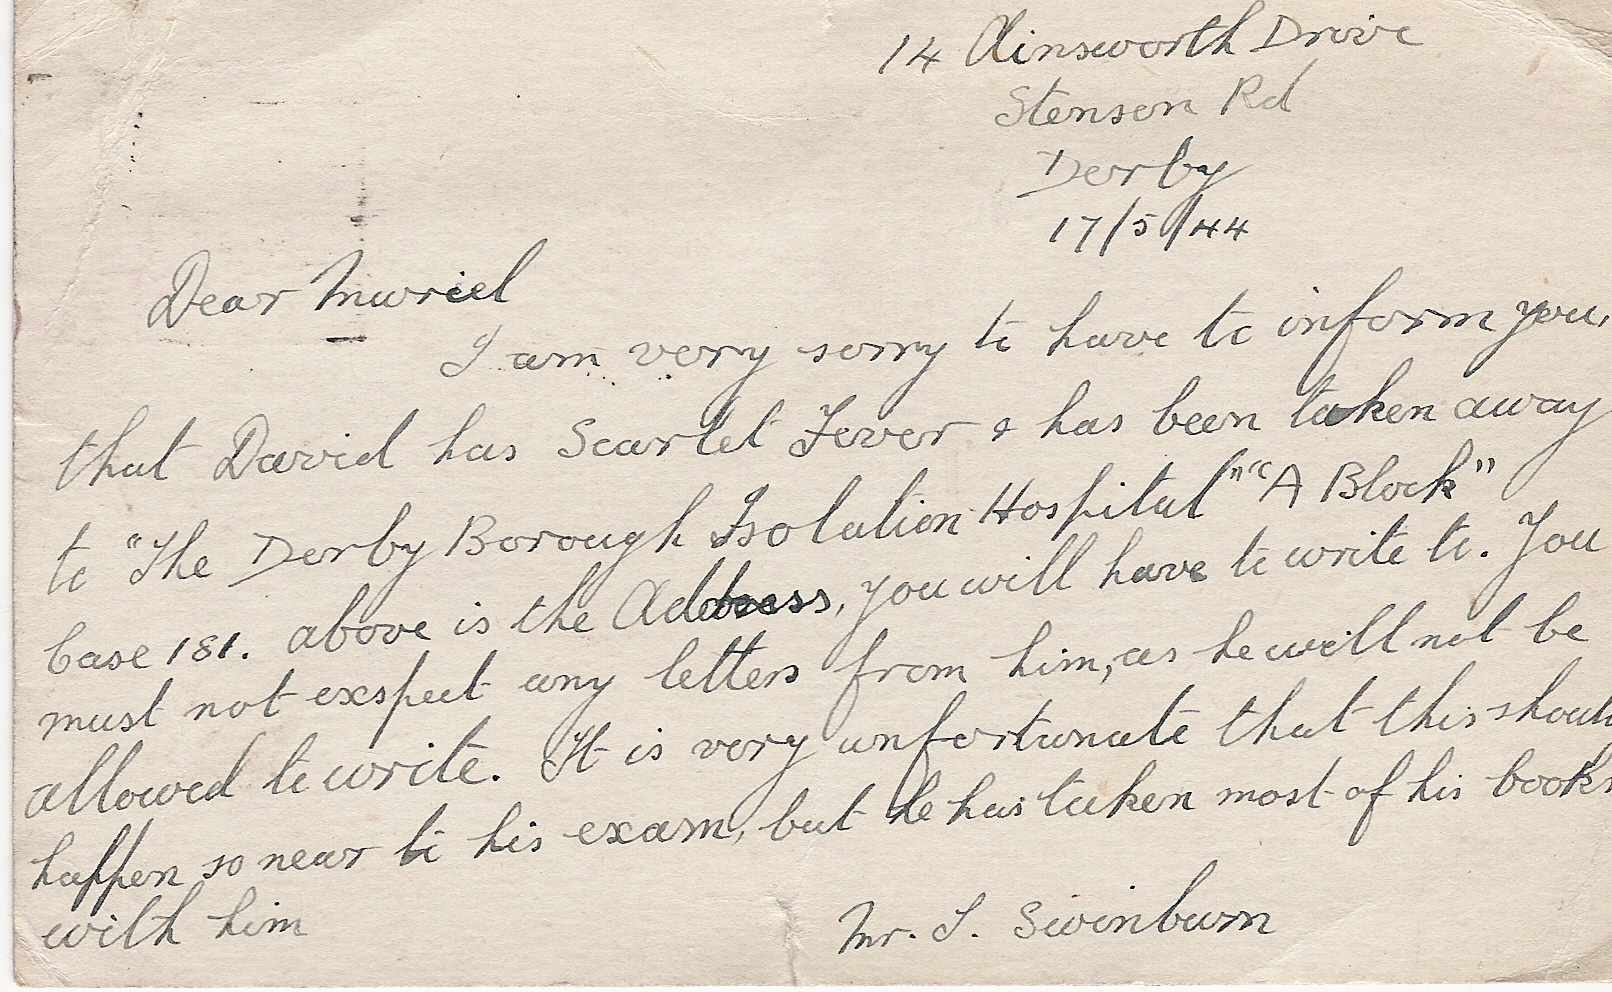 14 Ainsworth Drive
Stenson Rd
Derby
17/5/44
Dear Muriel
I am very sorry to have to inform you,
that David has Scarlet Fever & has been taken away
to "The Derby Borough Isolation Hospital" "A Block"
Case 181. above is the Address, you will have to write to. You
must not exspect any letters from him, as he will not be
allowed to write. It is very unfortunate that this should
happen so near to his exam, but he has taken most of his books
with him
Mr. S. Swinburn